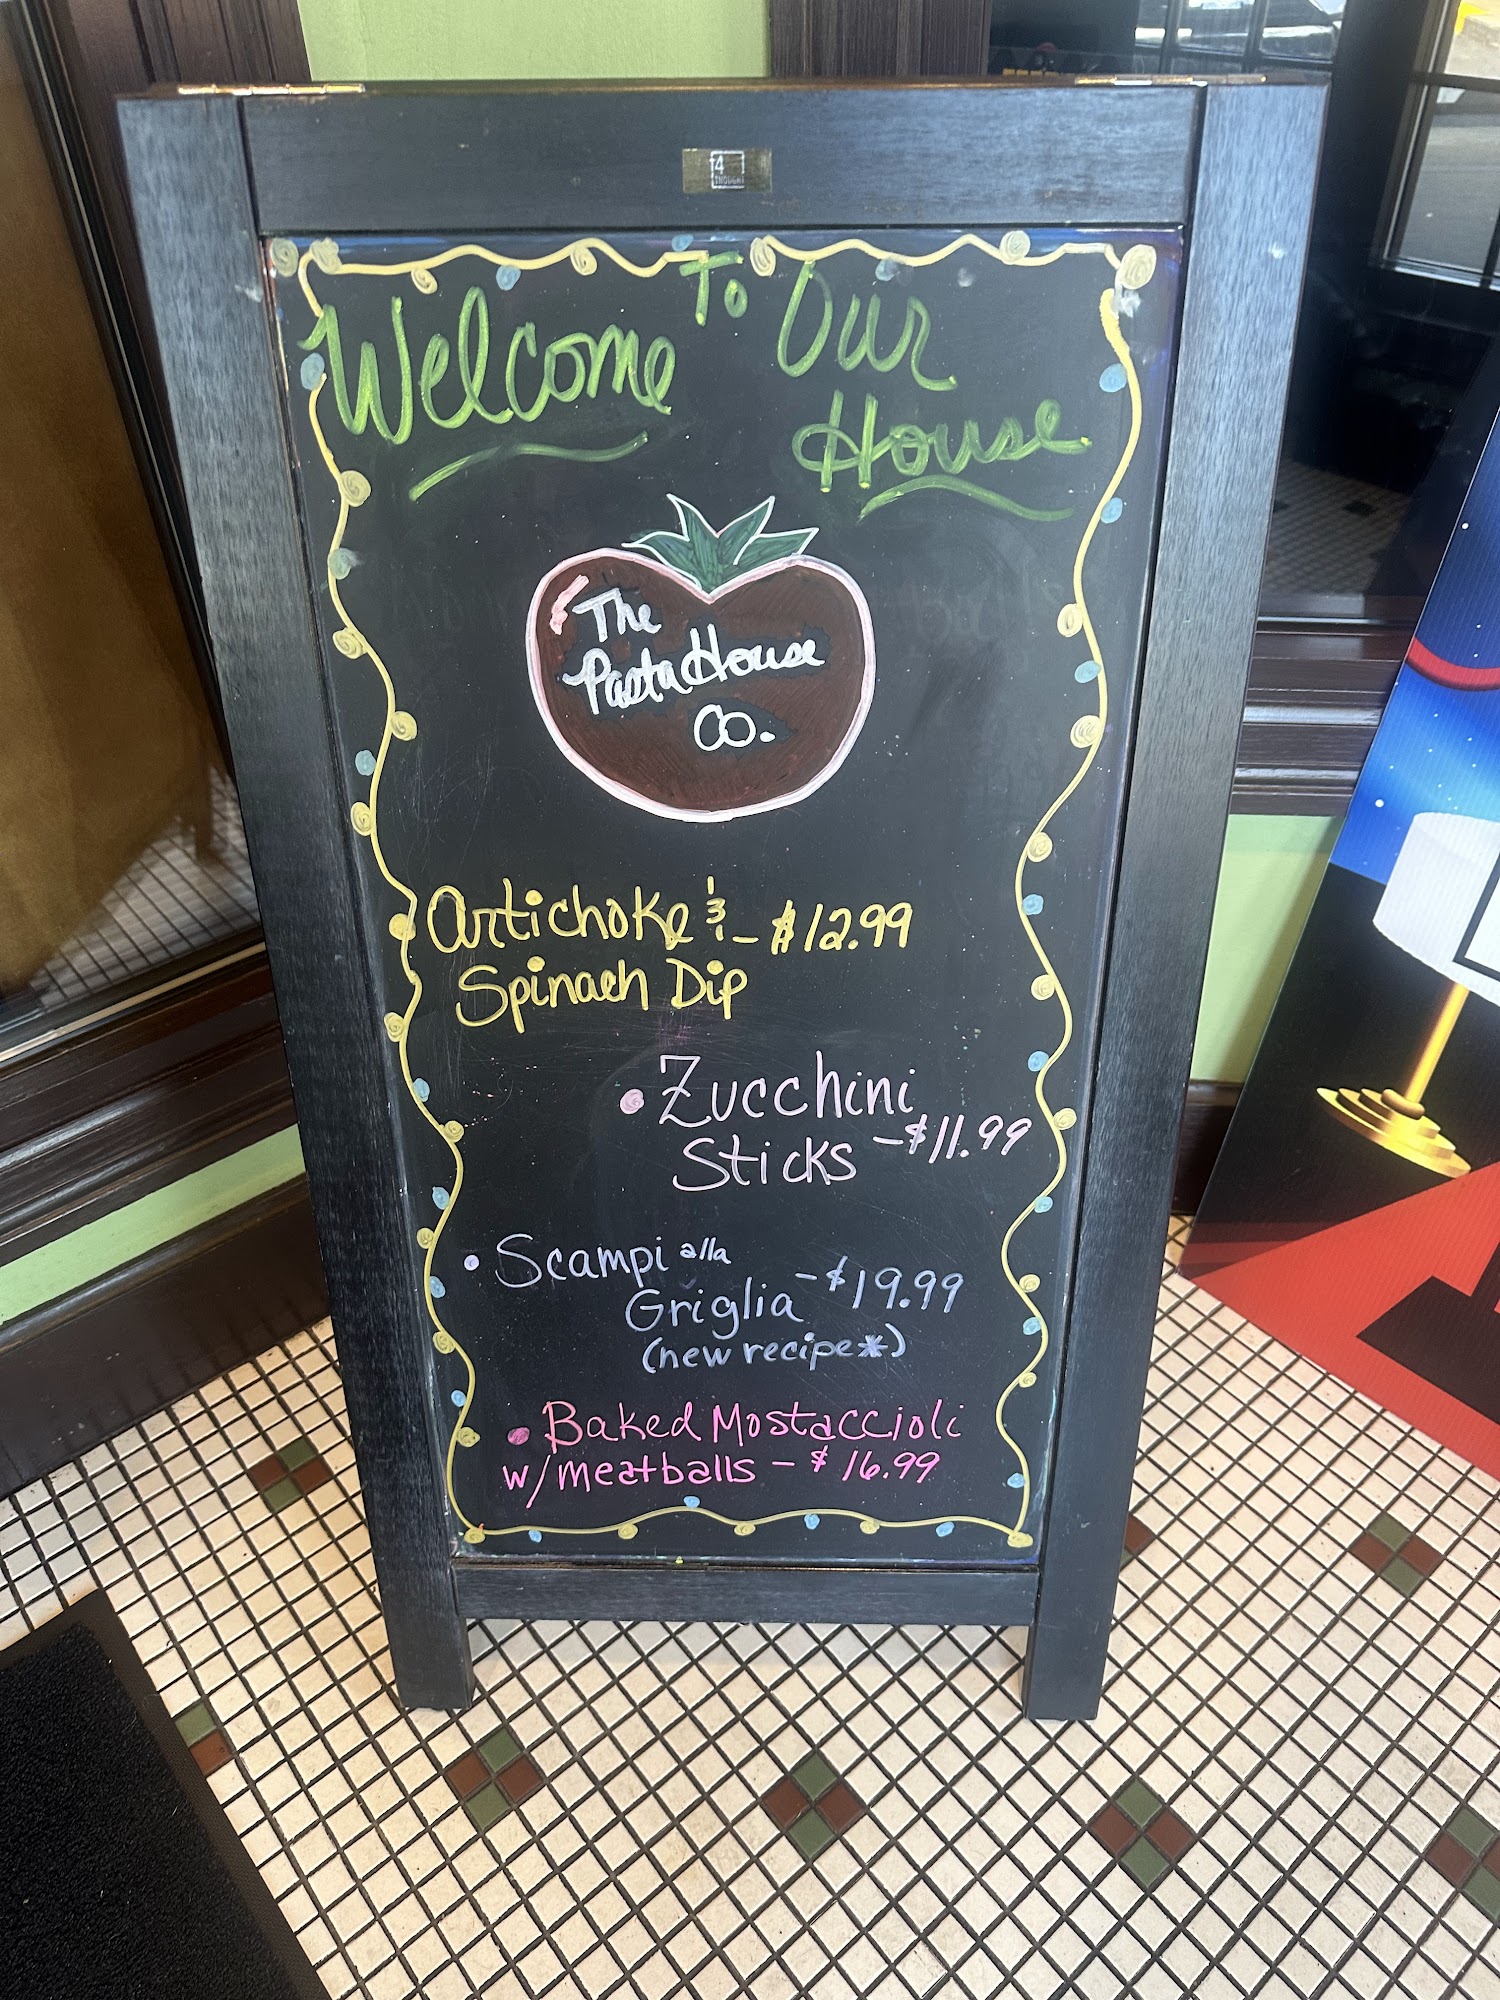 4
THOUGHT
Welcome To Our
House
The
Pasta House
Co.
Artichoke & - $12.99
Spinach Dip
• Zucchini
Sticks - $11.99
• Scampi alla
Griglia - $19.99
(new recipe*)
• Baked Mostaccioli
w/meatballs - $16.99